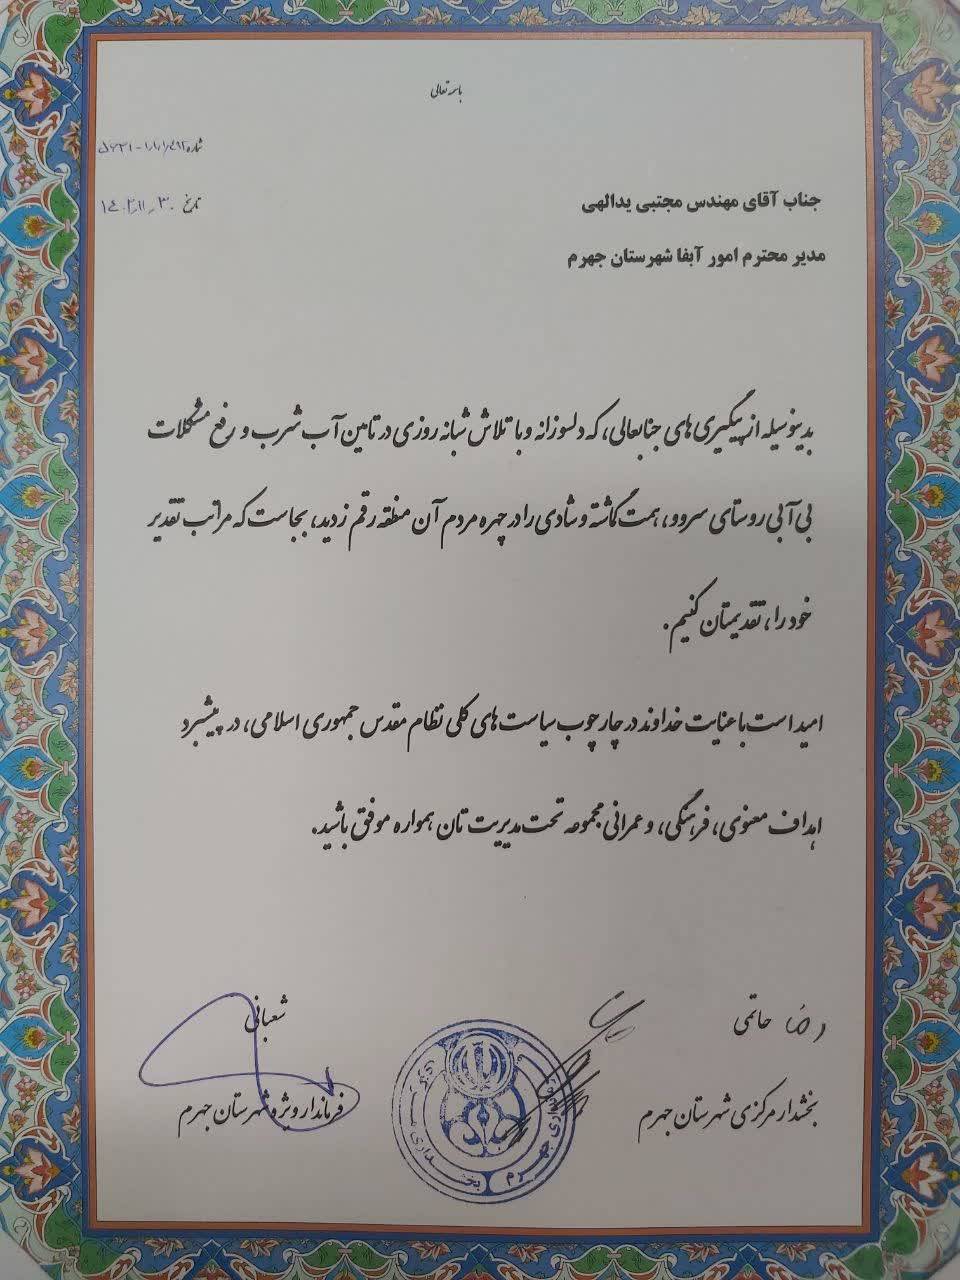 باسمه تعالی
شماره
تاریخ ۱۴۰۲/۱۱/۳۰
جناب آقای مهندس مجتبی یدالهی
مدیر محترم امور آبفا شهرستان جهرم
بدینوسیله از پیگیری های جنابعالی، که دلسوزانه و با تلاش شبانه روزی در تامین آب شرب و رفع مشکلات
بی آبی روستای سروو، همت گماشته و شادی را در چهره مردم آن منطقه رقم زدید، بجاست که مراتب تقدیر
خود را، تقدیمتان کنیم.
امید است با عنایت خداوند در چارچوب سیاست های کلی نظام مقدس جمهوری اسلامی، در پیشبرد
اهداف معنوی، فرهنگی، و عمرانی مجموعه تحت مدیریت تان همواره موفق باشید.
رضا حاتمی
بخشدار مرکزی شهرستان جهرم
شعبانی
فرماندار ویژه شهرستان جهرم
بخشداری
جهرم